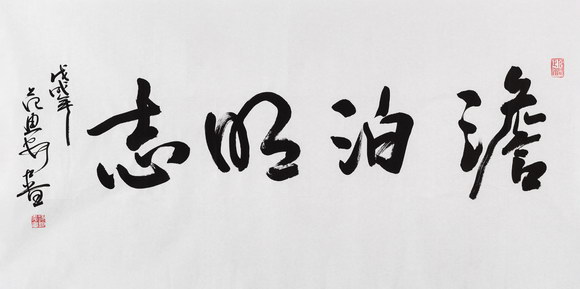 澹泊明志
戊戌年
范
書